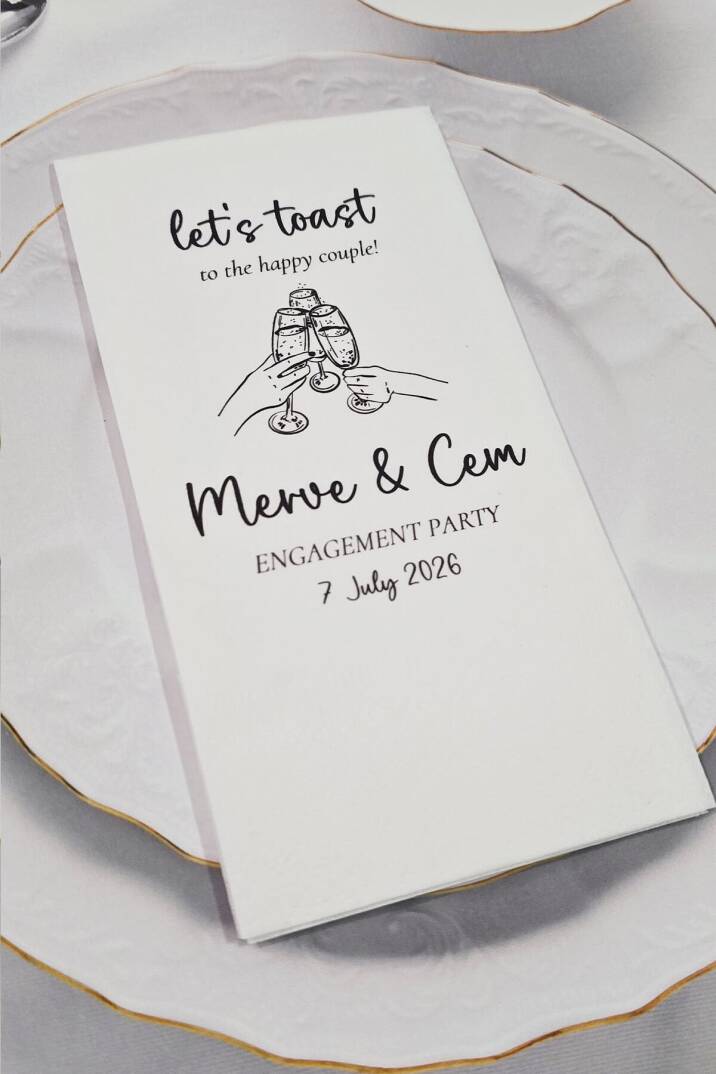 let's toast
to the happy couple!
Merve & Cem
ENGAGEMENT PARTY
7 July 2026